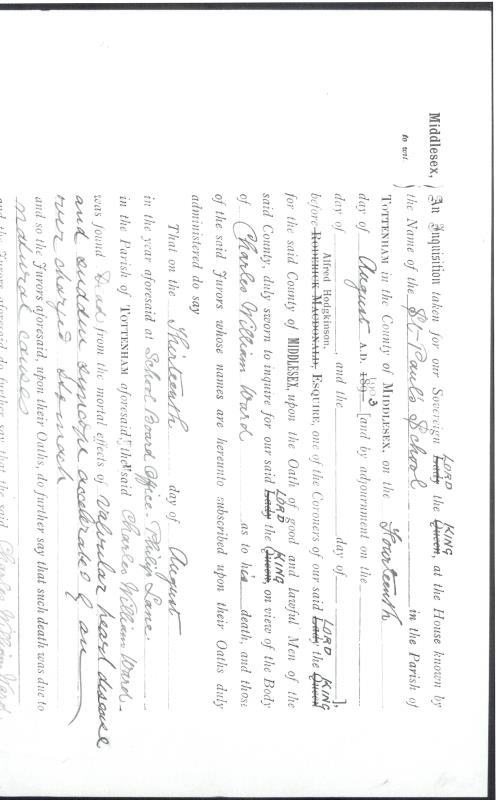 Middlesex, } An Inquisition taken for our Sovereign Lady LORD the Queen KING, at the House known by
to wit. } the Name of the St. Paul's School in the Parish of
TOTTENHAM in the County of MIDDLESEX, on the Fourteenth
day of August A.D. 189 1903 [and by adjournment on the
day of , and the day of ],
Alfred Hodgkinson.
before RODERICK MACDONALD, ESQUIRE, one of the Coroners of our said Lady LORD the Queen KING
for the said County of MIDDLESEX, upon the Oath of good and lawful Men of the
said County, duly sworn to inquire for our said Lady LORD the Queen, KING on view of the Body
of Charles William Ward as to his death, and those
of the said Jurors whose names are hereunto subscribed upon their Oaths duly
administered do say
That on the Thirteenth day of August
in the year aforesaid at School Board Office Philip Lane
in the Parish of TOTTENHAM aforesaid, the said Charles William Ward
was found dead from the mortal effects of valvular heart disease
and sudden syncope accelerated by an
over charged stomach
and so the Jurors aforesaid, upon their Oaths, do further say that such death was due to
natural causes
and the Jurors aforesaid do further say that the said Charles William Ward